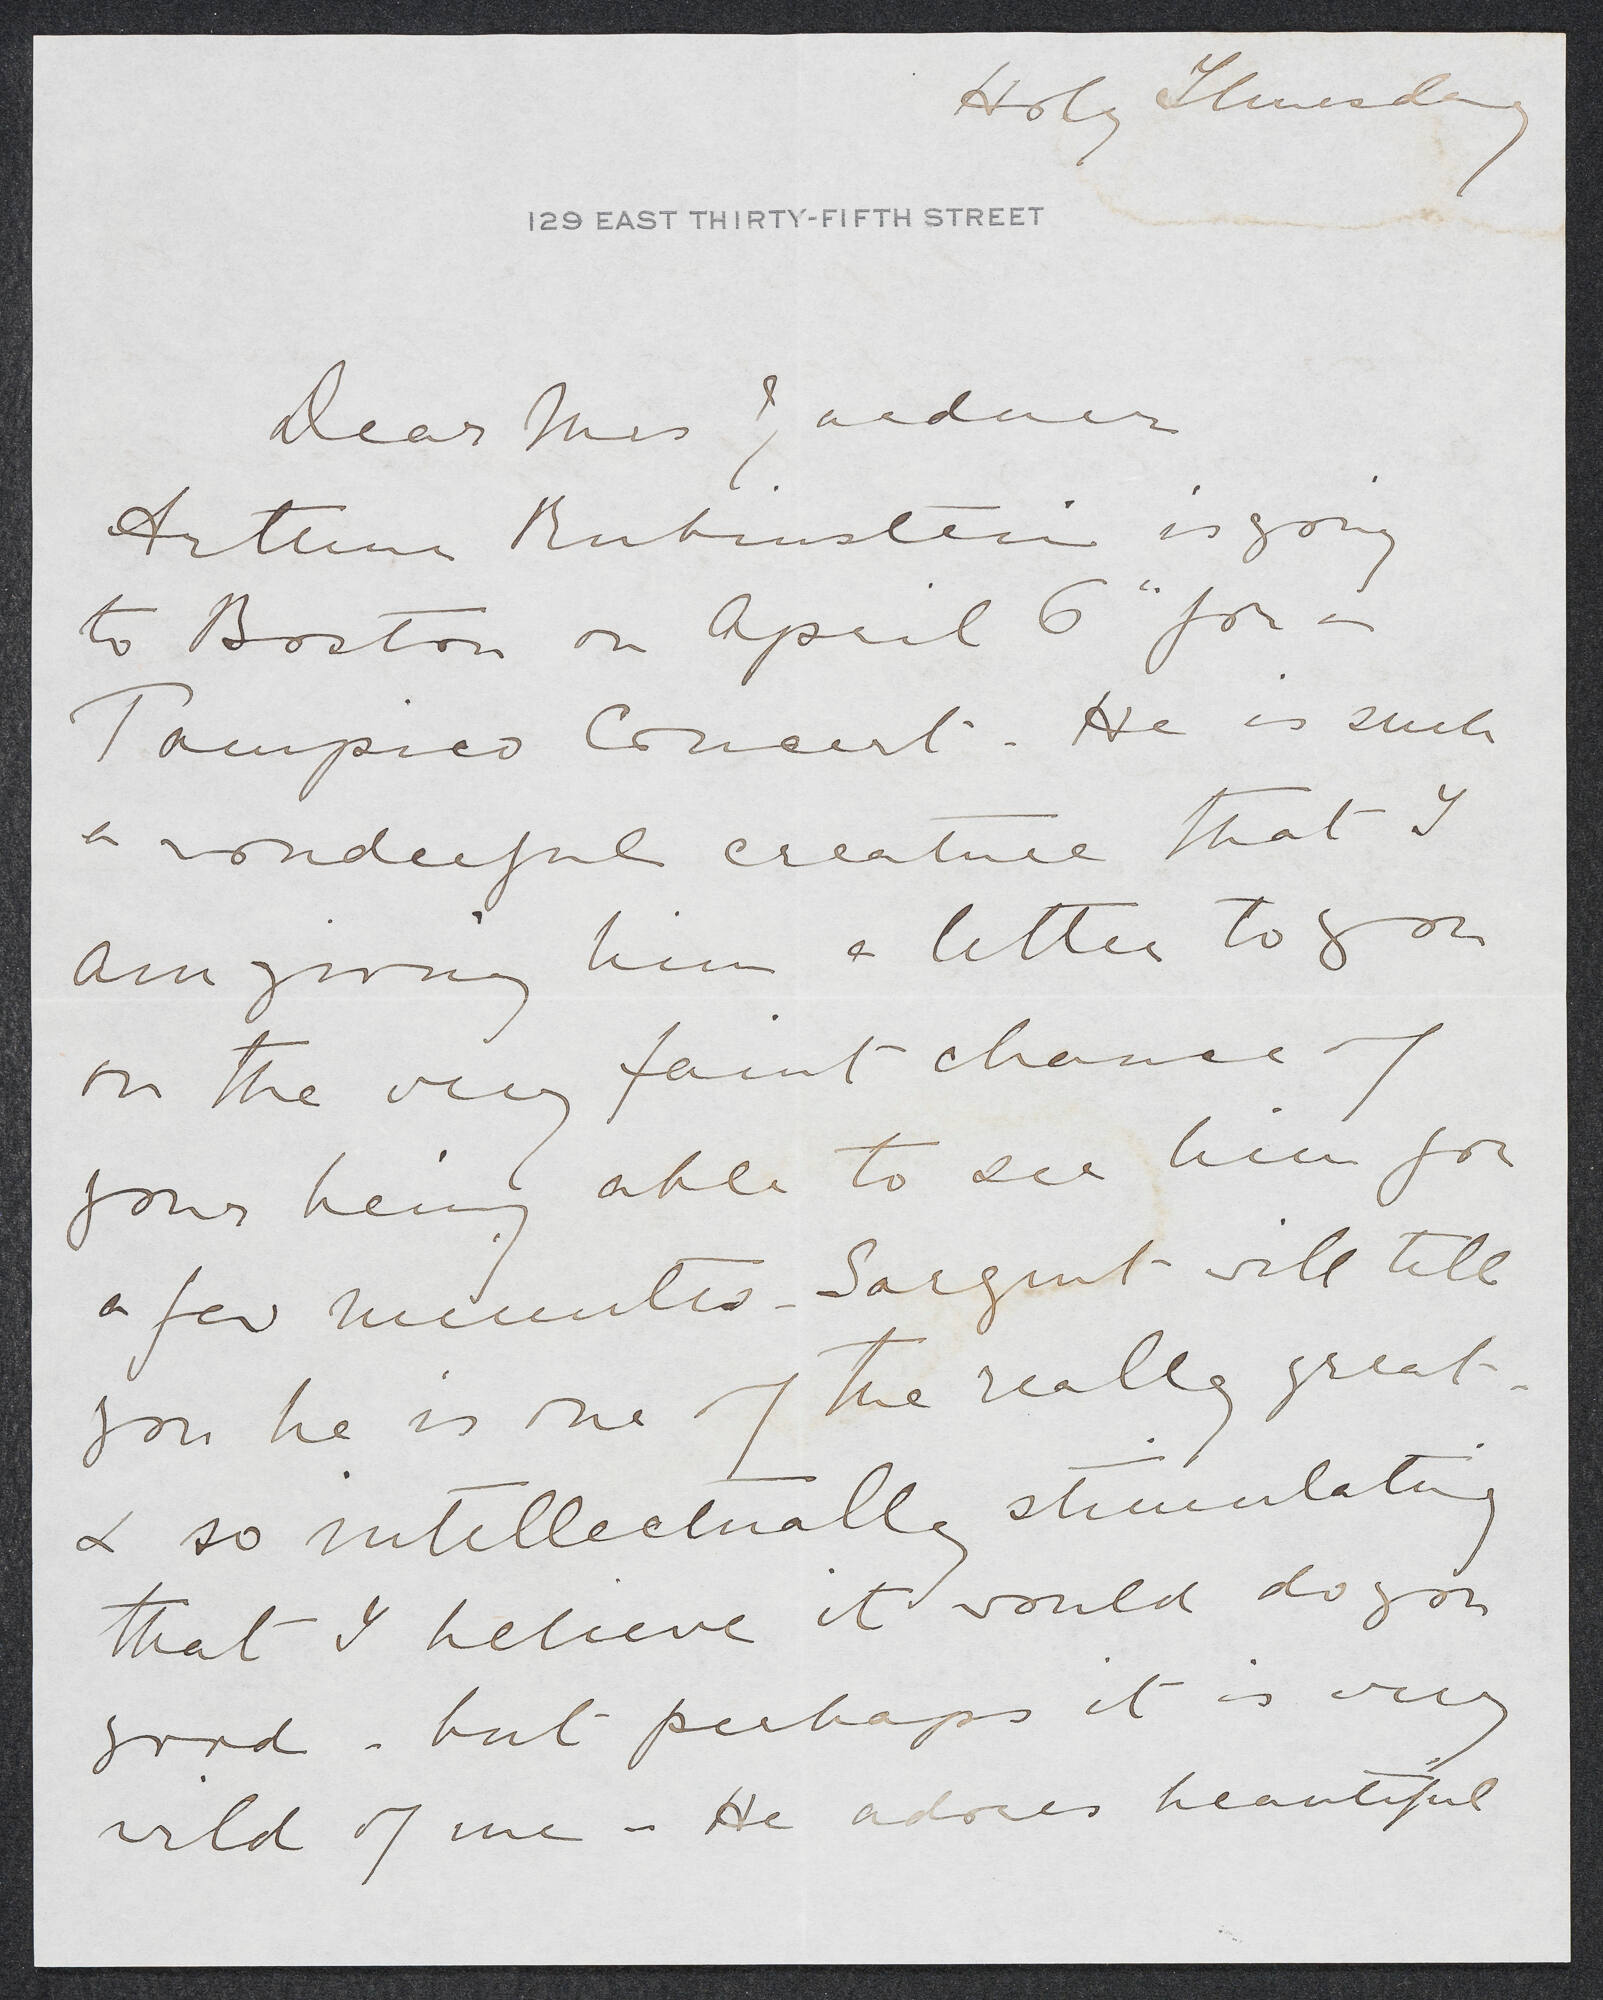 Holy Thursday
129 EAST THIRTY-FIFTH STREET
Dear Mrs Gardner
Arthur Rubinstein is going
to Boston on April 6" for a
Tampico Concert. He is such
a wonderful creature that I
am giving him a letter to you
on the very faint chance of
your being able to see him for
a few minutes - Sargent will tell
you he is one of the really great -
& so intellectually stimulating
that I believe it would do you
good - but perhaps it is very
wild of me - He adores beautiful